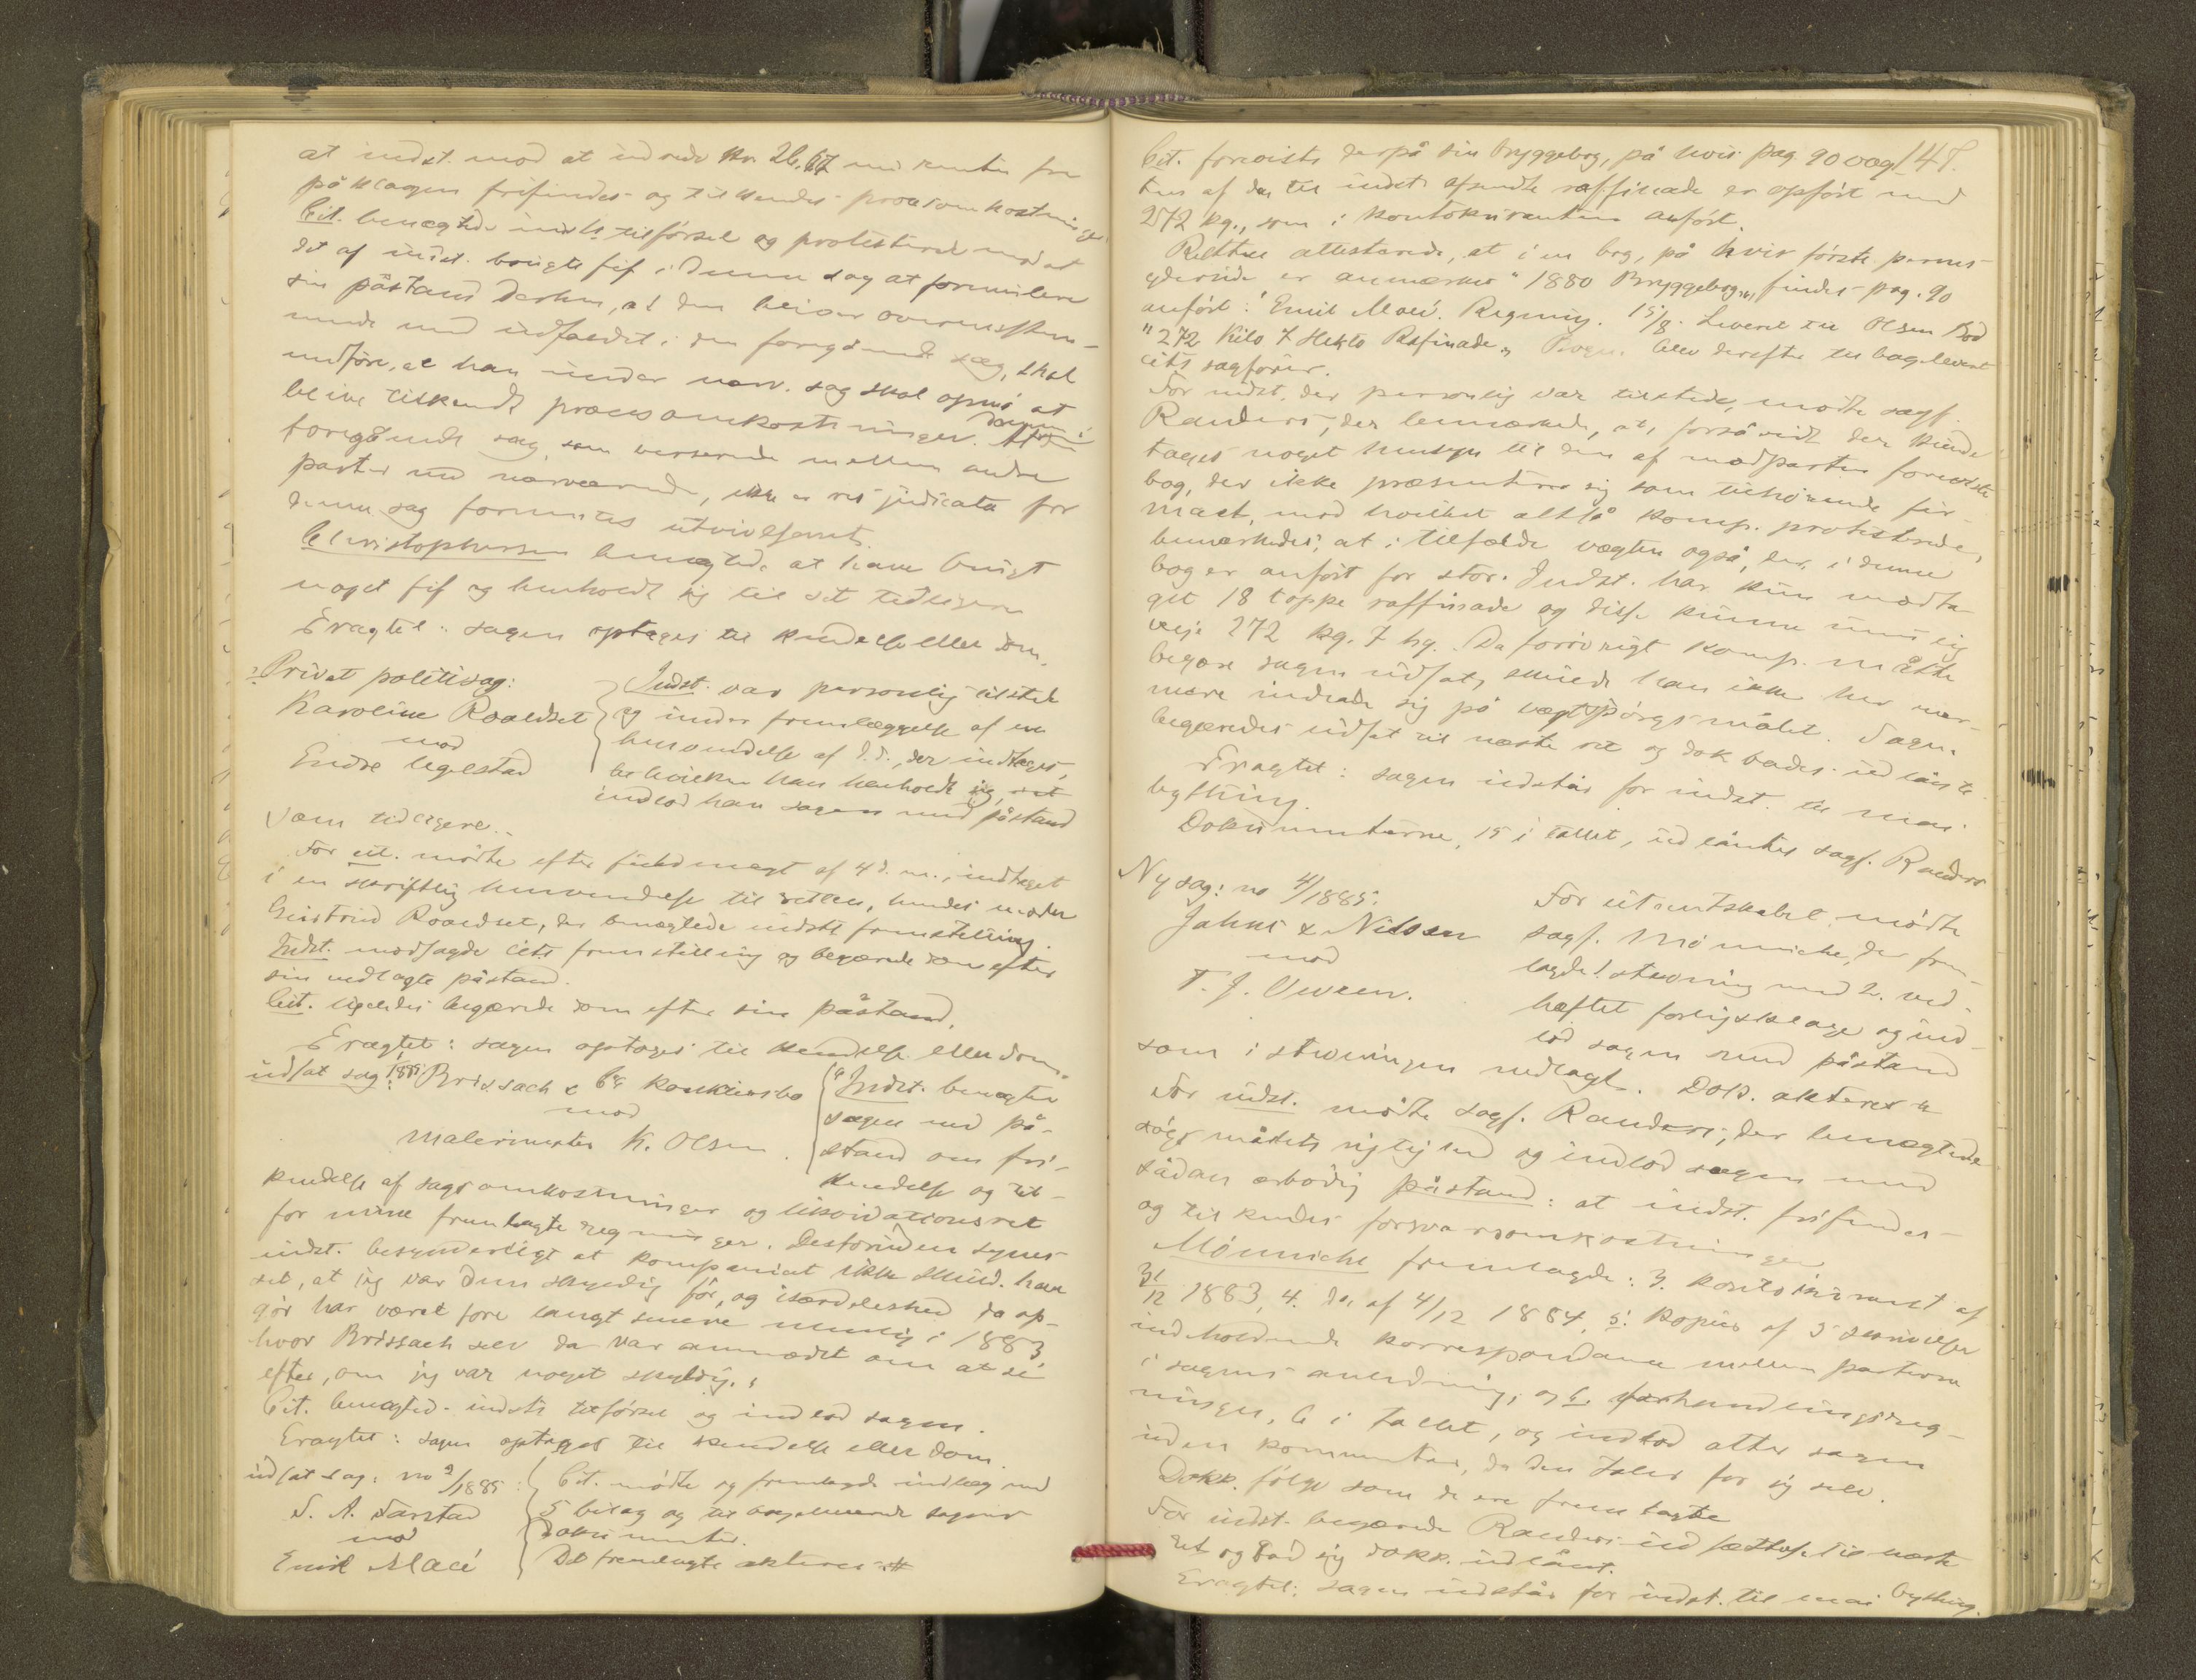 at indst. mod at udrede Kr. 26.67 med renter fra
påklagen frifindes og tilkendes procesomkostninger.
Cit. benægtede indsts tilførsel og protesterede mod at
det af indst. brugte fif i denne sag at formulere
sin påstand derhen, at den bliver overensstem-
mende med udfaldet i den foregående sag, skal
medføre, at han under nærv. sag skal opnå at
blive tilkendt procesomkostninger. At dommen i
foregående sag, som verserede mellem andre
parter end nærværende, ikke er res judicata for
denne sag formenes utvivlsomt.
Christophersen benægtede at have brugt
noget fif og henholdt sig til det tidligere
Eragtet: sagen optages til kendelse eller dom.
Privat politisag:
Karoline Roaldset
mod
Endre Ugelstad
Indst. var personlig tilstede
og under fremlæggelse af en
henvendelse af d.d., der indtages,
til hvilken han henholdt sig,
indlod han sagen med påstand
som tidligere.
For cit. mødte efter fuldmagt af 4 d. m., indtaget
i en skriftlig henvendelse til retten, hendes moder
Roaldset, der benægtede indsts fremstilling.
Indst. modsagde cits fremstilling og begærede dom efter
sin nedlagte påstand.
Cit. ligeledes begærede dom efter sin påstand.
Eragtet: sagen optages til kendelse eller dom.
udsat sag: 1885 Brissach & Co konkursbo
mod
Malermester K. Olsen.
"Indst. benægter
sagen med på-
stand om fri-
kendelse og til-
kendelse af sagsomkostninger og likvidationsret
for mine fremlagte regninger. Desforuden synes
indst. besynderligt at kompaniet ikke skuld. have
set, at jeg var dem skyldig før, og isærdeleshed da op-
gør har været fore langt senere nemlig i 1883
hvor Brissach selv da var anmodet om at se
efter, om jeg var noget skyldig."
Cit. benægted. indsts tilførsel og indlod sagen.
Eragtet: sagen optages til kendelse eller dom.
udsat sag: no 2/1885:
S. A. Farstad
mod
Emil Macé
Cit. mødte og fremlagde indlæg med
5 bilag og tilbageleverede sagens
dokumenter.
Det fremlagte akteres #
Cit. foreviste derpå sin bryggebog, på hvis pag. 90 væg- 47.
ten af den til indst. afsendte raffinade er opført med
272 kg., som i kontokuranten anført.
Retten attesterede, at i en bog, på hvis første perms
yderside er anmærket "1880 Bryggebog", findes pag. 90
anført: "Emil Macé. Regning. 15/8. Leveret til Olsen Bød
"272 Kilo 7 Hekto Rafinade". Bogen blev derefter tilbageleveret
cits sagfører.
For indst., der personlig var tilstede, mødte sagf.
Randers, der bemærkede, at, forsåvidt der kunde
tages noget hensyn til den af modparten foreviste
bog, der ikke præsenterer sig som tilhørende fir-
maet, mod hvilket altså komp. protesterede,
bemærkedes, at i tilfælde vægten også her i denne
bog er anført for stor. Indst. har kun modta-
get 18 toppe raffinade og disse kunne umulig
veje 272 kg. 7 hg. Da forøvrigt komp. måtte
begære sagen udsat, skulde han ikke her nær-
mere indlade sig på vægtspørgsmålet. Sagen
begæredes udsat til næste ret og dok bades udlånte
Eragtet: sagen udstår for indst. til mai
bything.
Dokumenterne, 15 i tallet, udlåntes sagf. Randers
Ny sag: no 4/1885:
Jahns & Nilssen
mod
T. J. Owren.
For citantskabet mødte
sagf. Mönniche, der frem-
lagde 1. stævning med 2. ved-
hæftet forligsklage og ind-
lod sagen med påstand
som i stævningen nedlagt. Dok. akteres #
For indst. mødte sagf. Randers, der benægtede
søgsmålets rigtighed og indlod sagen med
sådan ærbødig påstand: at indst. frifindes
og tilkendes forsvarsomkostninger
Mönniche fremlagde: 3. kontokurant af
31/12 1883, 4. do. af 4/12 1884, 5. kopier af 5 skrivelser
indeholdende korrespondance mellem parterne
i sagens anledning, og 6. forhandlingsreg-
ninger, 6 i tallet, og indlod atter sagen
uden kommentar, da den taler for sig selv.
Dokk. følge som de ere fremlagte
For indst. begærede Randers udsættelse til næste
ret og bad sig dokk. udlånt.
Eragtet: sagen udstår for indst. til mai bything.